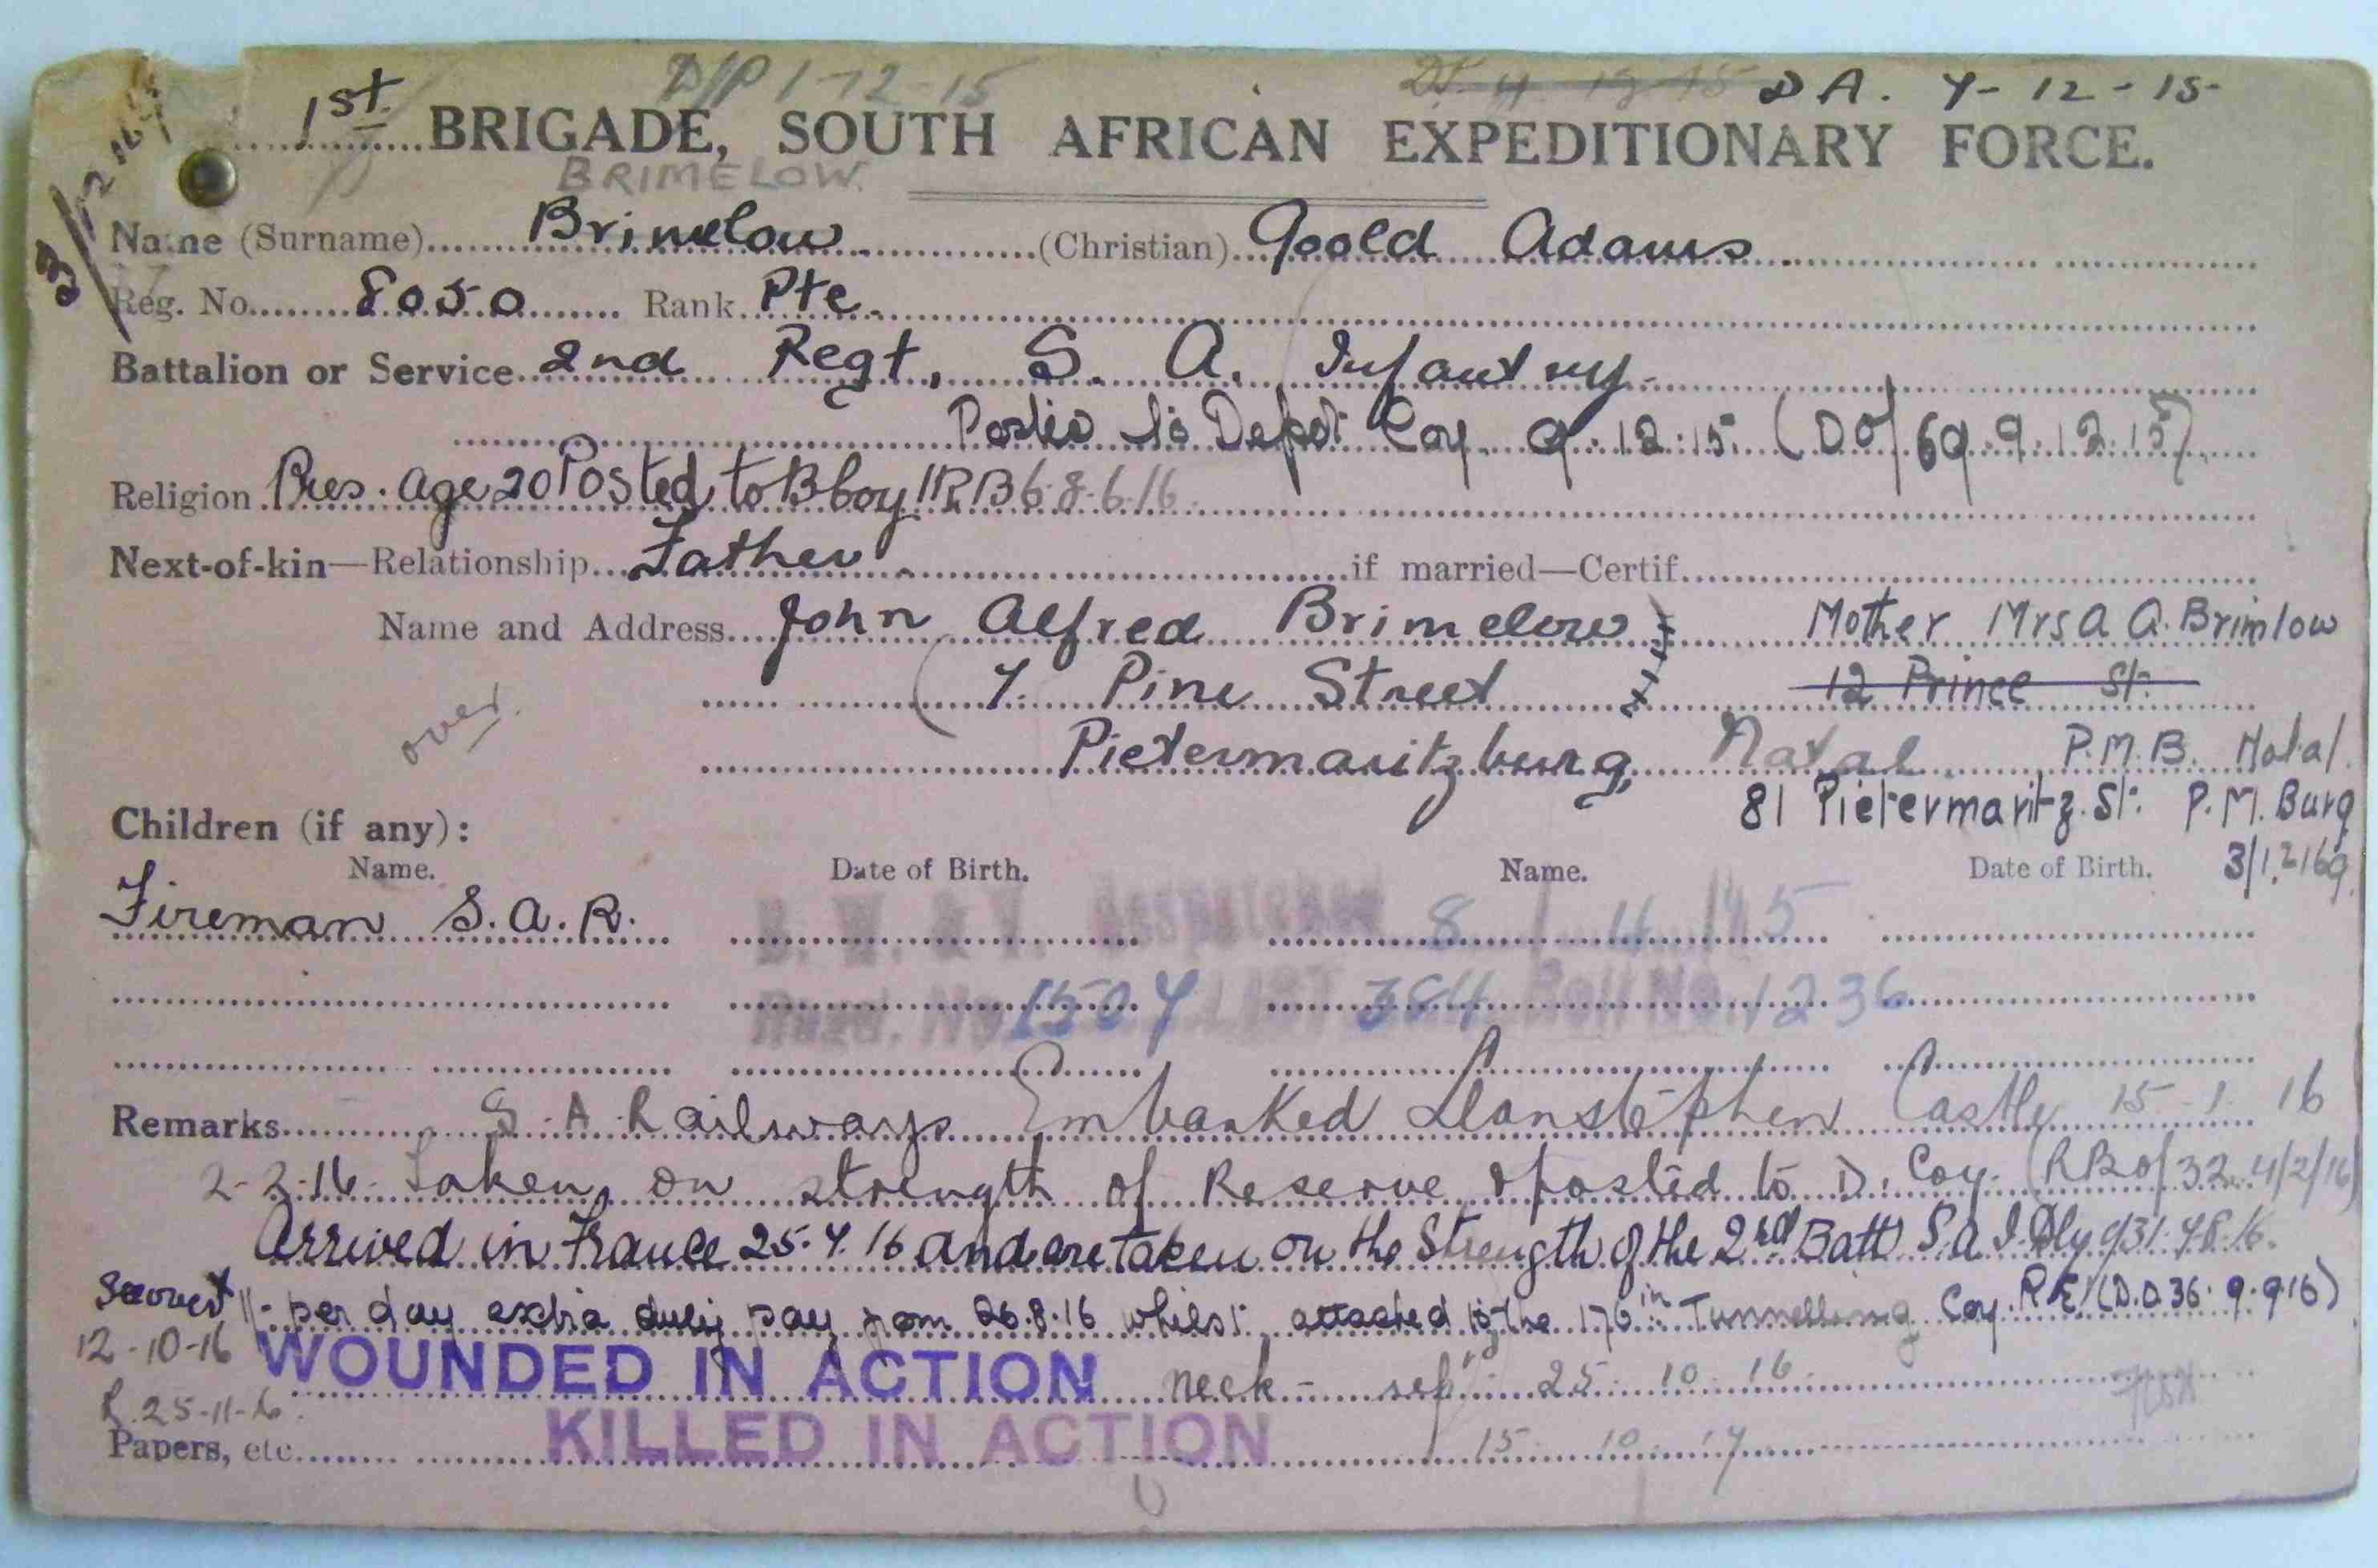 D/P 1-12-15 DA. 7-12-15-
1st BRIGADE, SOUTH AFRICAN EXPEDITIONARY FORCE.
BRIMELOW.
Name (Surname) Brimelow (Christian) Goold Adams
Reg. No. 8050 Rank Pte.
Battalion or Service 2nd Regt, S. A. Infantry.
Posted to Depot Coy. 9.12.15. (DO/69.9.12.15)
Religion Pres. age 20 Posted to B Coy 8.6.16.
Next-of-kin—Relationship Father. if married—Certif.
Name and Address John Alfred Brimelow Mother Mrs A A. Brimlow
7. Pine Street 12 Prince St.
over. Pietermaritzburg, Natal P.M.B. Natal.
81 Pietermaritz. St. P.M. Burg
Children (if any):
Name. Date of Birth. Name. Date of Birth.
Fireman S.A.R. Despatched
Regd. No. 1507 LIST 384 Roll No. 1236
Remarks S.A. Railways Embarked Llanstephen Castle 15-1-16
2-2-16 Taken on strength of Reserve & posted to D. Coy. (RBO/32.4/2/16)
Arrived in France 25.7.16 and are taken on the Strength of the 2nd Batt S.A.I.
per day extra duty pay from 26.8.16 whilst attached to the 176th Tunnelling Coy. R.E. (D.O 36. 9.9.16)
12-10-16 WOUNDED IN ACTION neck - 25.10.16
R. 25-11-16.
Papers, etc. KILLED IN ACTION 15 10 17